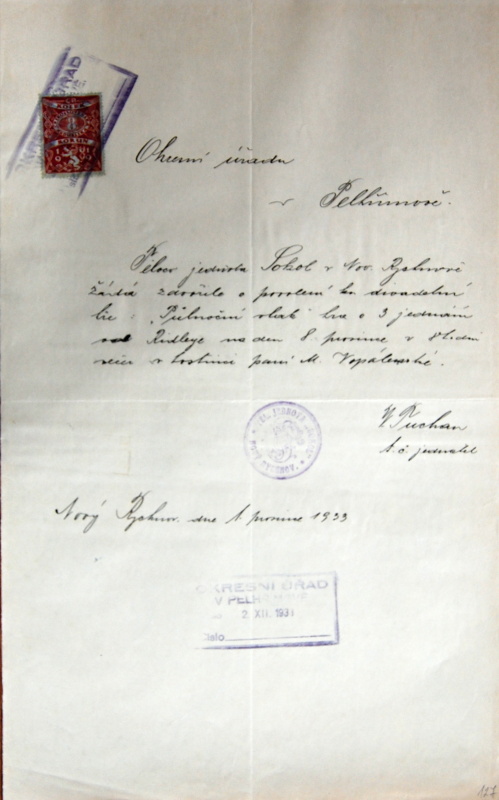 Okresní úřadu
v Pelhřimově.
Těloc. jednota Sokol v Nov. Rychnově
žádá zdvořile o povolení ku divadelní
hře: "Půlnoční vlak" hra o 3 jednáních
od Ridleye na den 8. prosince v 8 hodin
večer v hostinci paní M.
V. Tuchan
t. č. jednatel
Nový Rychnov. dne 1. prosince 1933
OKRESNÍ ÚŘAD
V PELHŘIMOVĚ
2. XII. 1933
Číslo
117